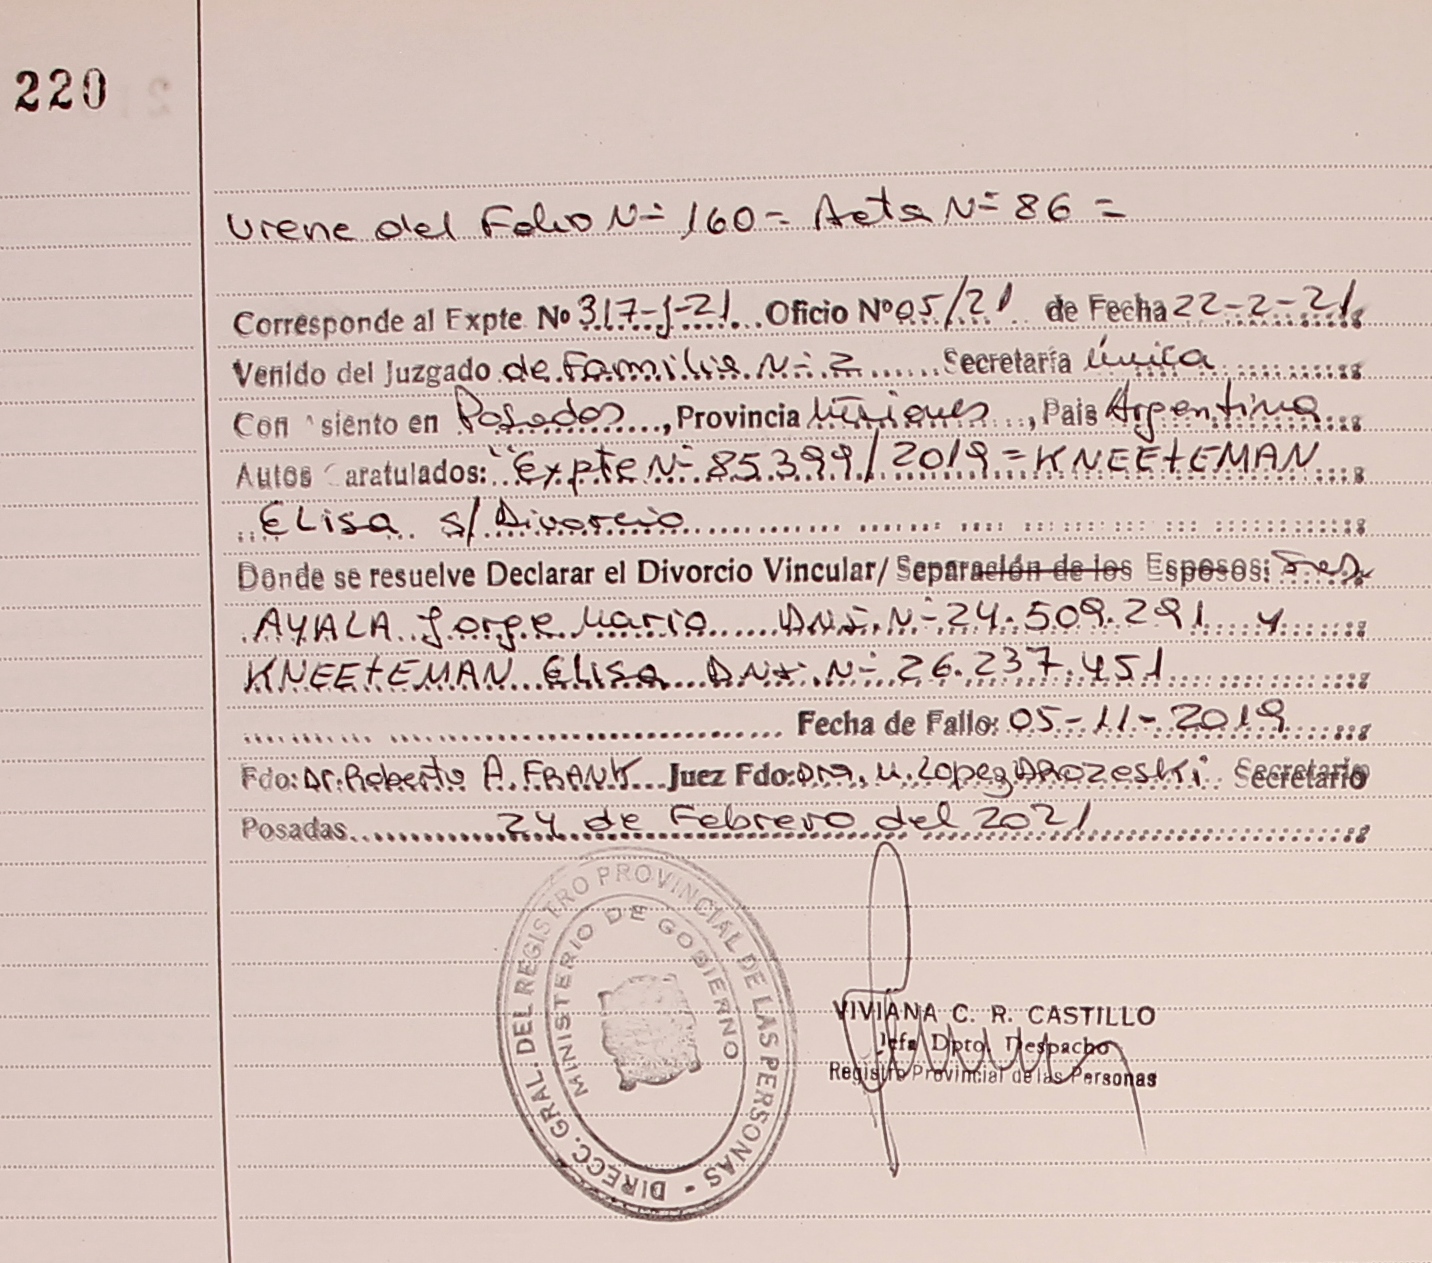 220
Viene del Folio Nº 160 = Acta Nº 86 =
Corresponde al Expte Nº 317-J-21 Oficio Nº 05/21 de Fecha 22-2-21
Venido del Juzgado de Familia Nº 2 Secretaría Única
Con asiento en Posadas, Provincia Misiones, Pais Argentina
Autos Caratulados: "Expte Nº 85.399/2019 = KNEEtEMAN
Elisa s/ Divorcio
Donde se resuelve Declarar el Divorcio Vincular/ Separación de los Esposos: Sres.
AYALA Jorge Mario DNI. Nº 24.509.291 y
KNEEtEMAN Elisa DNI. Nº 26.237.451
Fecha de Fallo: 05-11-2019
Fdo: Dr. Roberto A. FRANK Juez Fdo: Dra. M. Lopez DROZESKI Secretario
Posadas 24 de Febrero del 2021
DIRECC. GRAL. DEL REGISTRO PROVINCIAL DE LAS PERSONAS -
MINISTERIO DE GOBIERNO
VIVIANA C. R. CASTILLO
Jefa Dpto. Despacho
Registro Provincial de las Personas